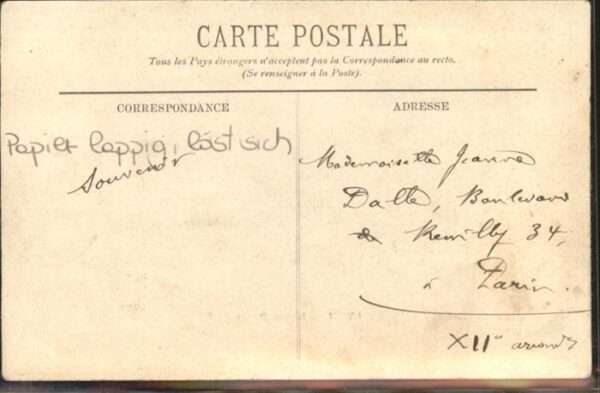 CARTE POSTALE
Tous les Pays étrangers n'acceptent pas la Correspondance au recto.
(Se renseigner à la Poste).
CORRESPONDANCE
Papier lappig, löst sich
Souvenir
ADRESSE
Mademoiselle Jeanne
Dalle, Boulevard
de Reuilly 34,
à Paris.
XIIe arrondt